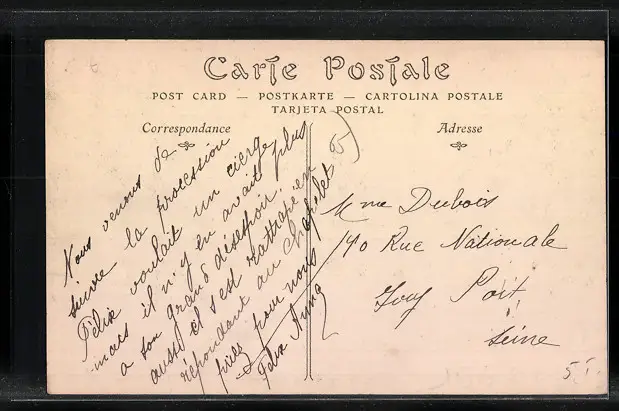 Carte Postale
POST CARD — POSTKARTE — CARTOLINA POSTALE
TARJETA POSTAL
Correspondance
Adresse
Nous venons de
suivre la procession
Félix voulait un cierge
mais il n'y en avait plus
a son grand désespoir.
aussi il s'est rattrapé en
répondant au chapelet
priez pour nous
Félix Anna
Mme Dubois
140 Rue Nationale
Seine